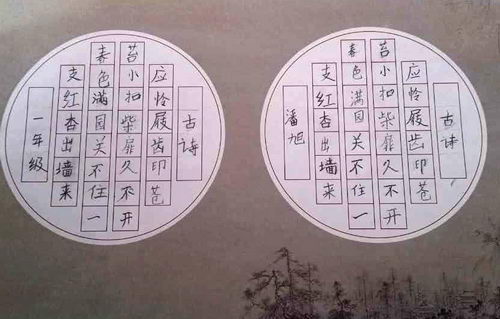 古诗
应怜履齿印苍
苔小扣柴扉久不开
春色满园关不住一
支红杏出墙来
一年级
古诗
应怜履齿印苍
苔小扣柴扉久不开
春色满园关不住一
支红杏出墙来
潘旭